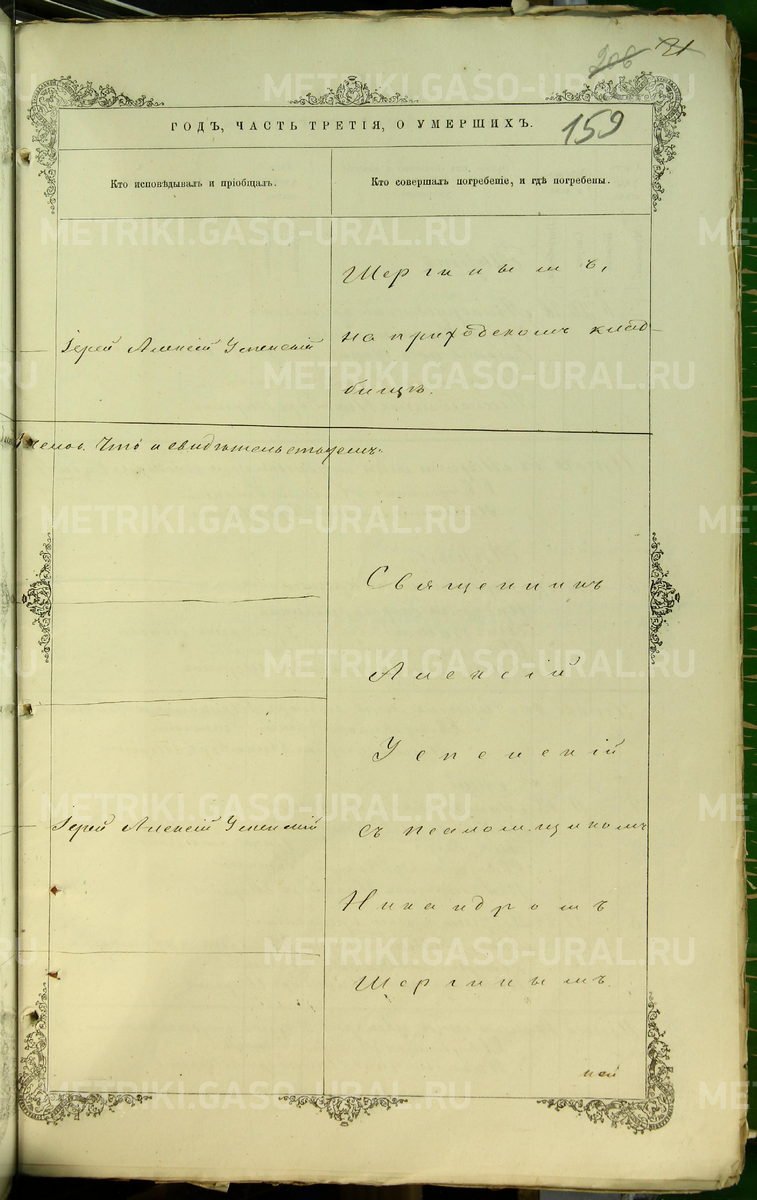 206 21
ГОДЪ, ЧАСТЬ ТРЕТІЯ, О УМЕРШИХЪ.
159
Кто исповѣдывалъ и пріобщалъ.
Кто совершалъ погребеніе, и гдѣ погребены.
METRIKI.GASO-URAL.RU
Шергинымъ,
Іерей Алексій Успенскій
на приходскомъ клад-
бищѣ.
Что и свидѣтельствуемъ.
Священникъ
Алексій
Успенскій
Іерей Алексій Успенскій
съ псаломщикомъ
Никандромъ
Шергинымъ